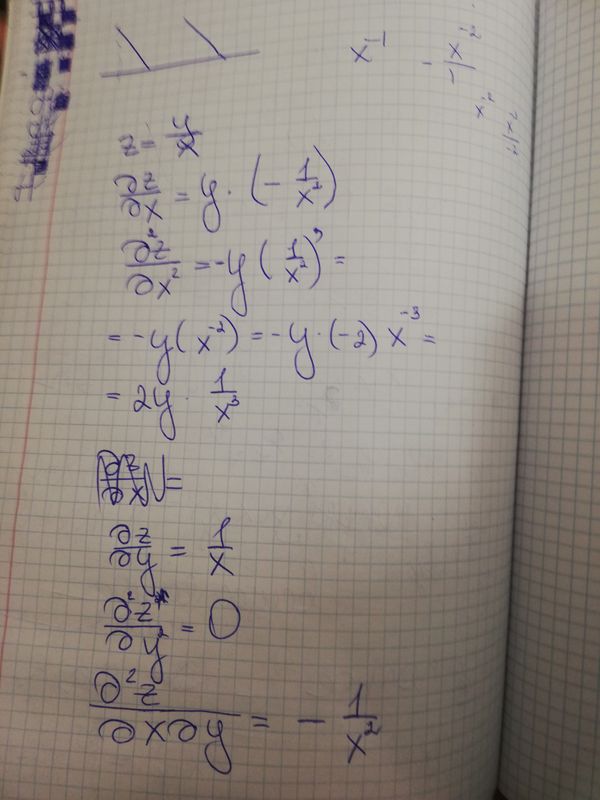 x⁻¹ - x⁻²/1
x⁻²
z = y/x
∂z/∂x = y · (- 1/x²)
∂²z/∂x² = -y (1/x²)' =
= -y(x⁻²) = -y · (-2) x⁻³ =
= 2y · 1/x³
∂z/∂y = 1/x
∂²z/∂y² = 0
∂²z/∂x∂y = - 1/x²